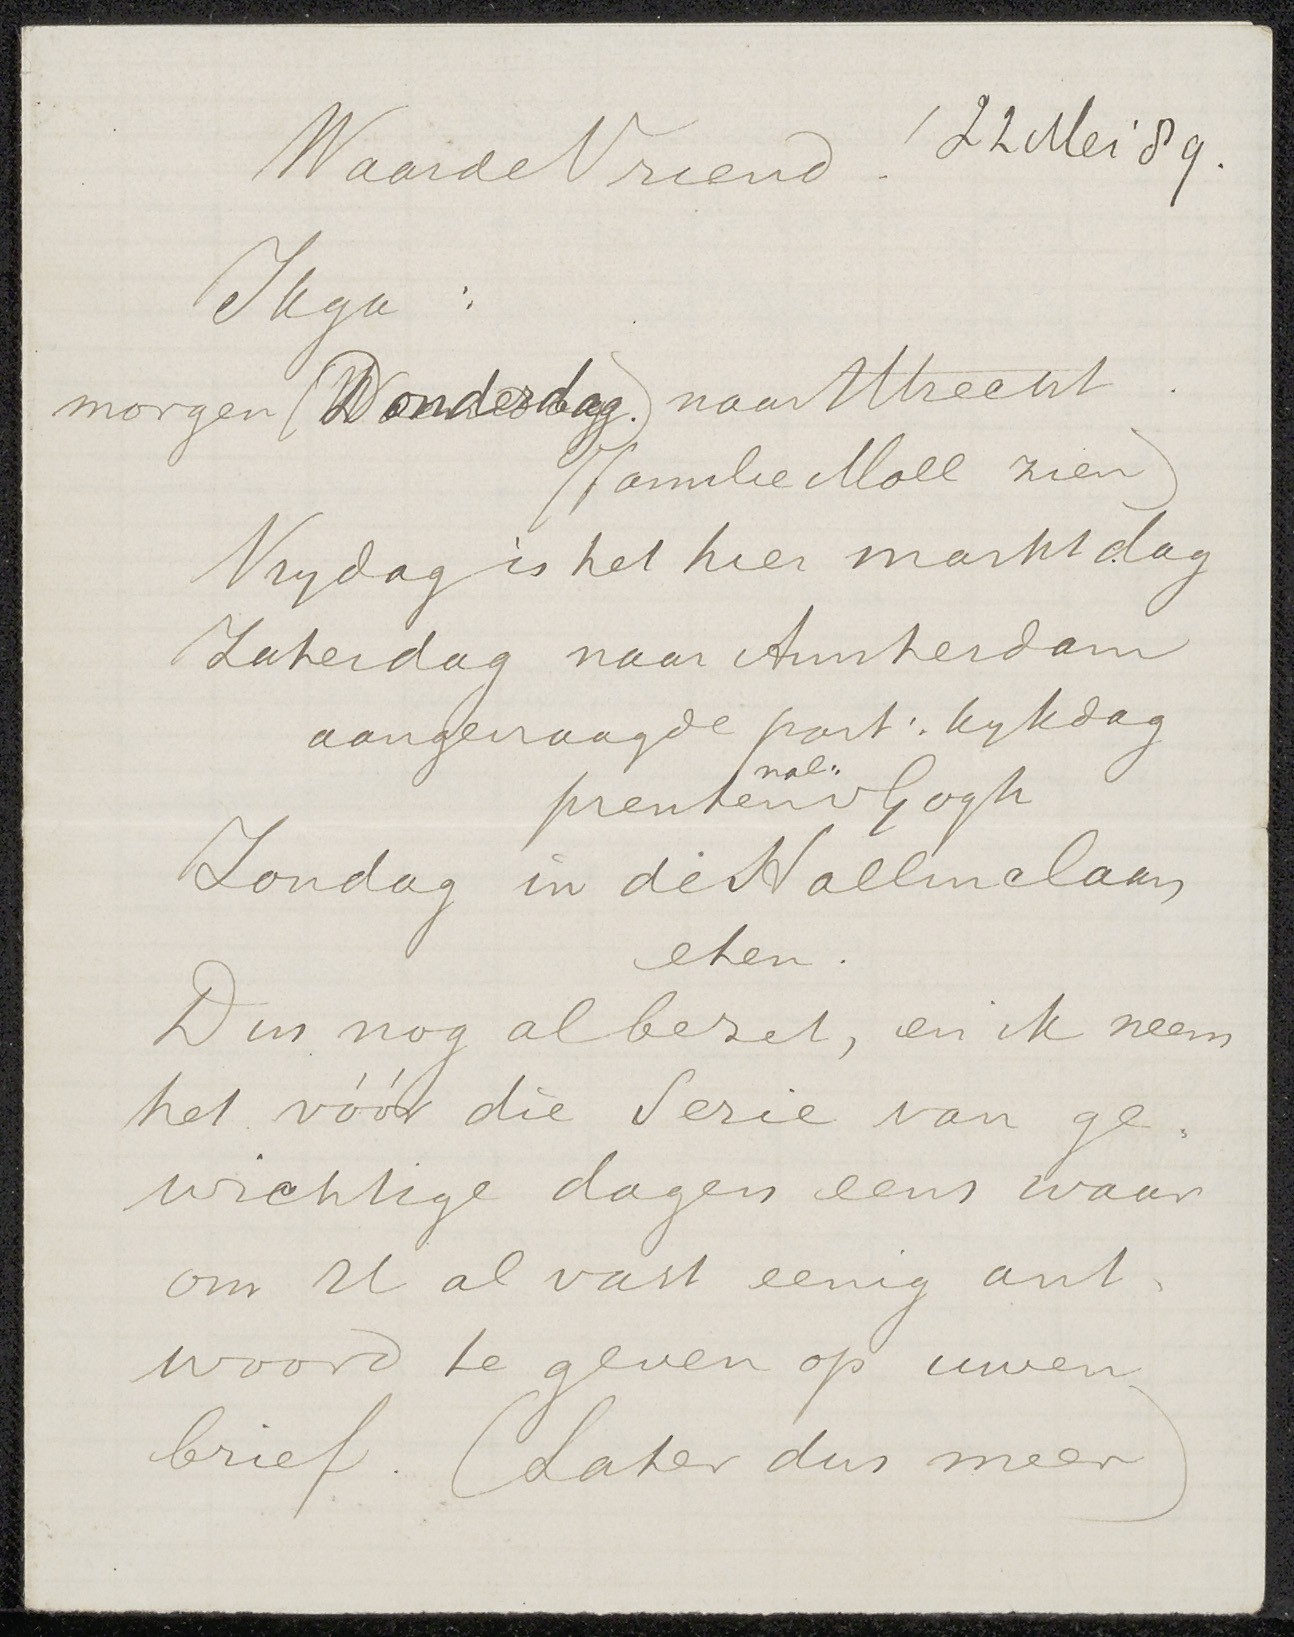 Waarde Vriend. 22 Mei '89.
Ik ga :
morgen (Donderdag.) naar Utrecht.
(familie Moll zien)
Vrydag is het hier marktdag
Zaterdag naar Amsterdam
aangevraagde part: kykdag
nal:
prenten v Gogh
Zondag in de
eten.
Dus nog al bezet, en ik neem
het vóór die Serie van ge-
wichtige dagen eens waar
om U al vast eenig ant-
woord te geven op uwen
brief. (Later dus meer)